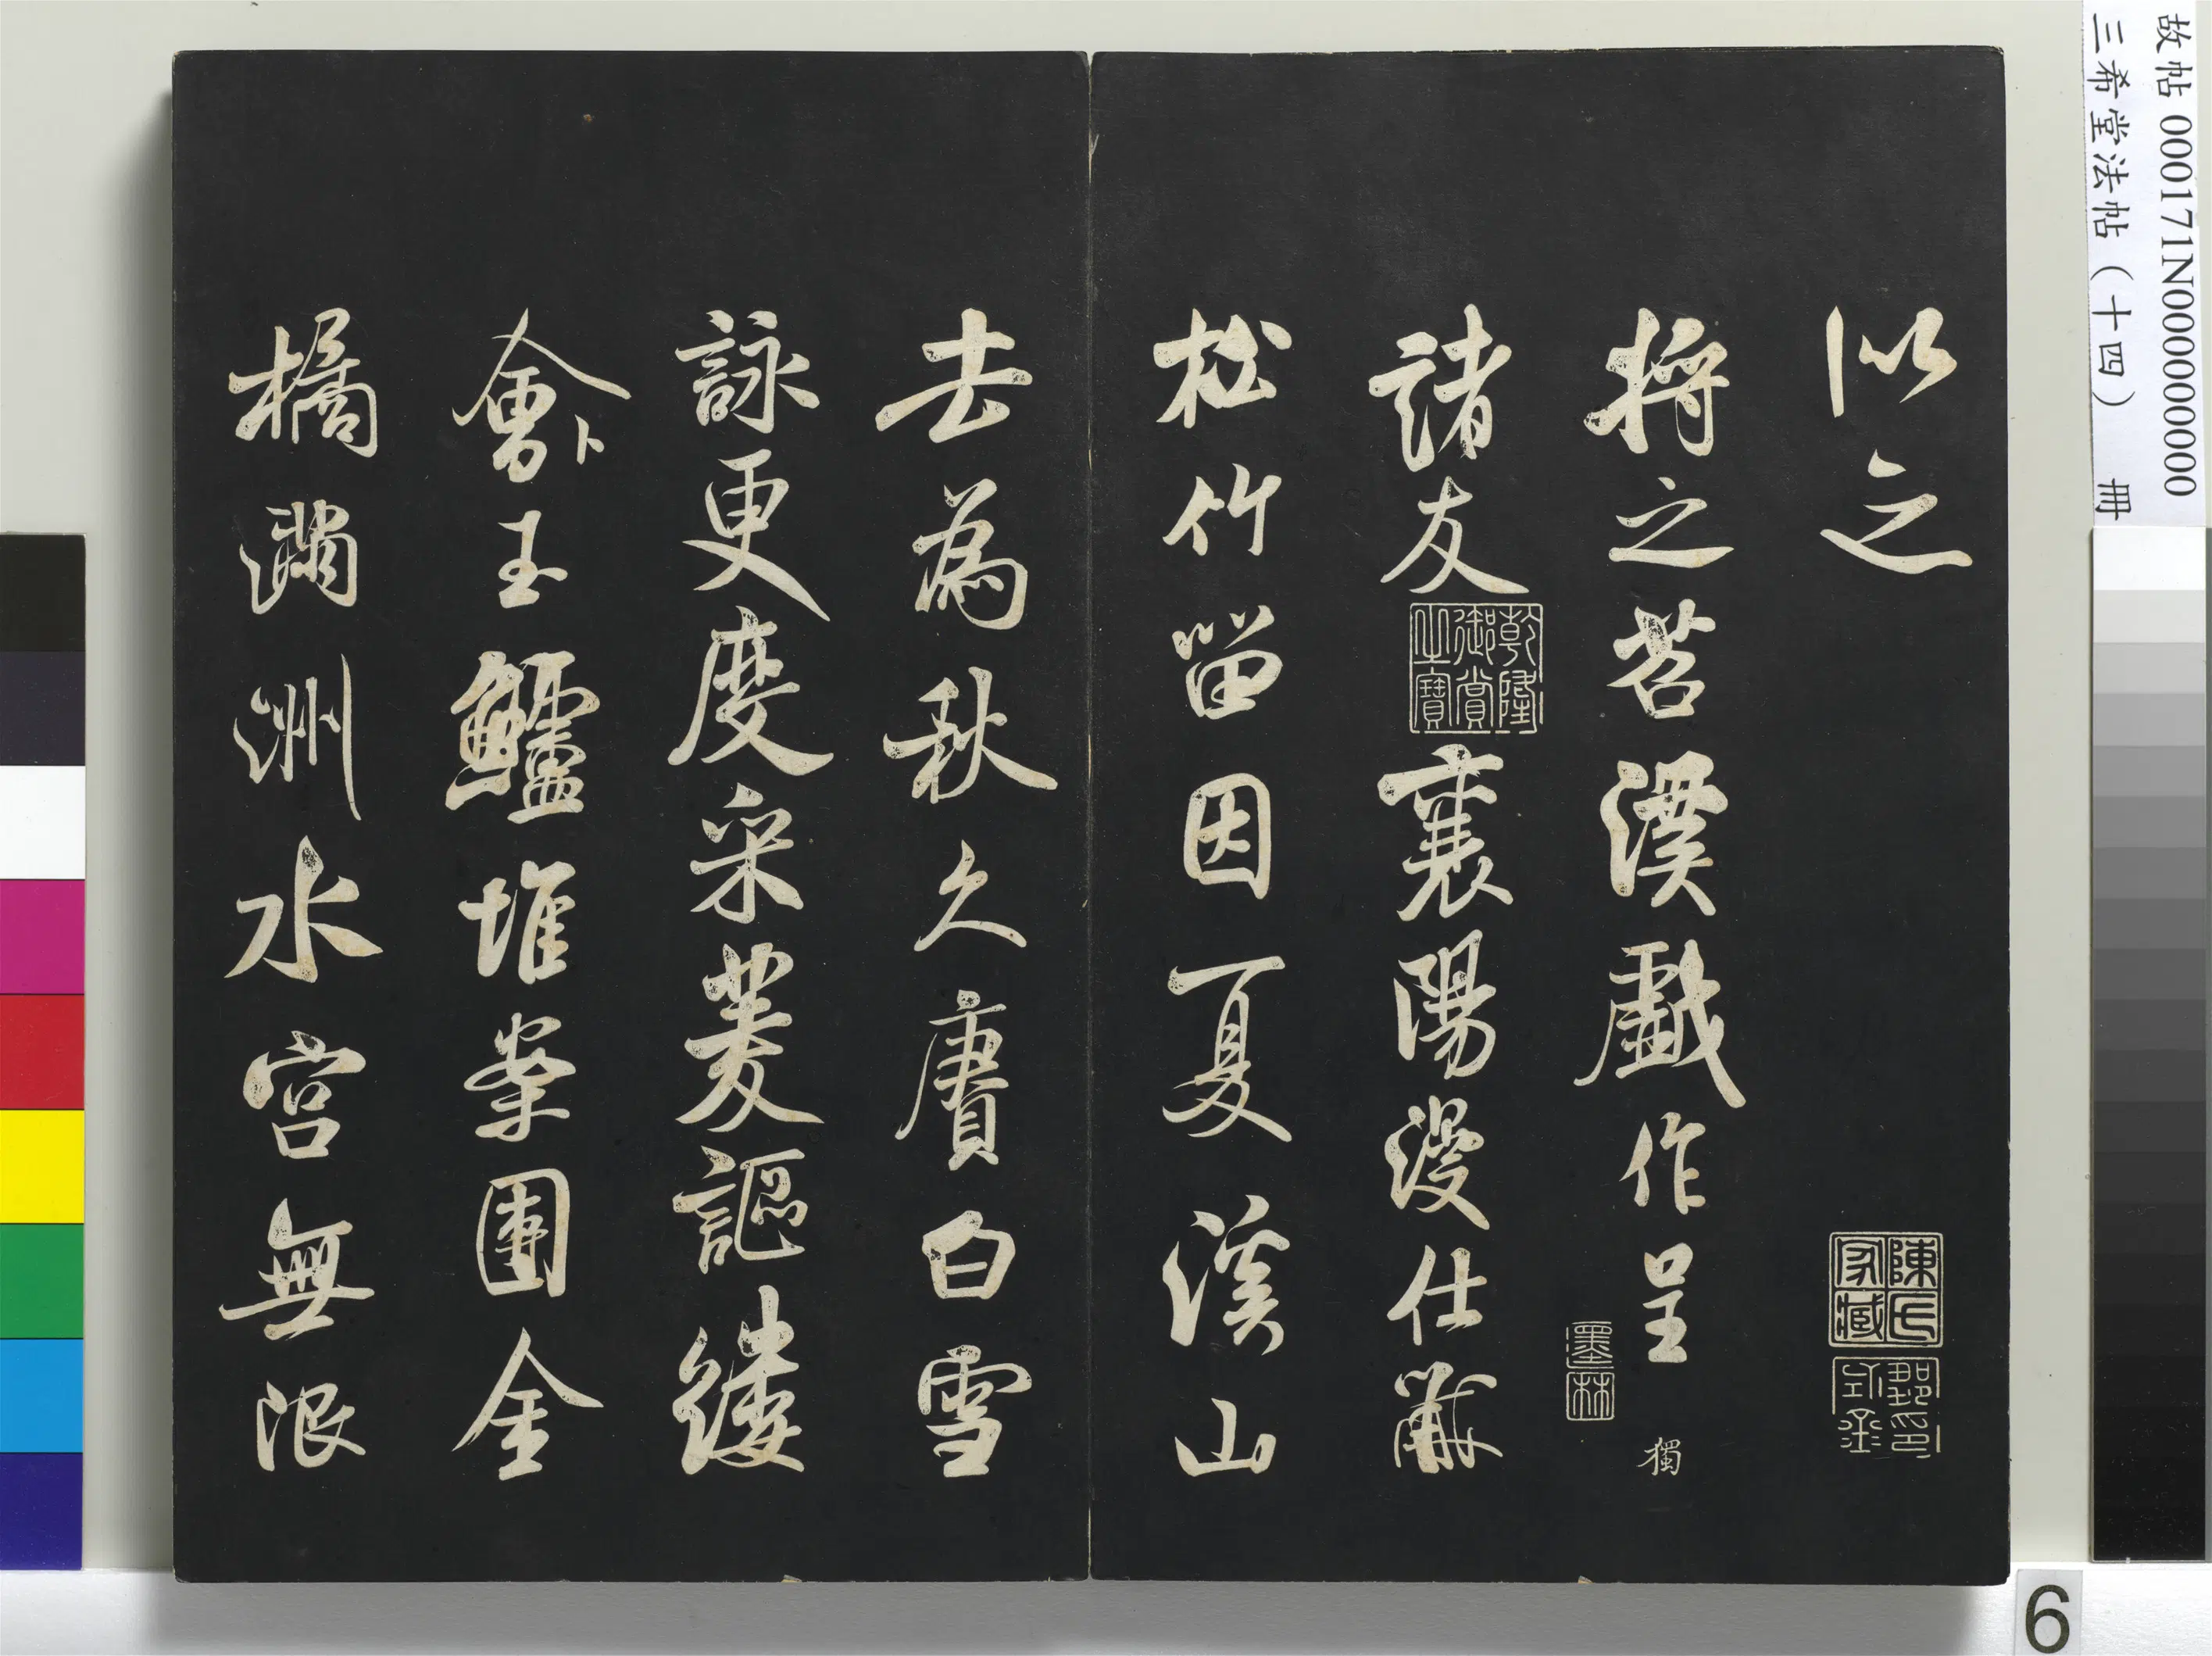 故帖 000171N000000000
三希堂法帖（十四） 冊
以之
陳氏家藏
將之苕溪戲作呈
獨
墨林
諸友
乾隆御賞之寶
襄陽漫仕黻
松竹留因夏溪山
去為秋久賡白雪
詠更度采菱謳縷
會卜玉鱸堆案團金
橘滿洲水宮無限
6